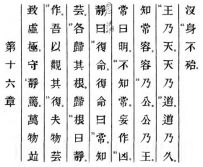 第十六章
致虛極,守靜篤.萬物並
作,吾以觀其復.夫物芸
芸,各歸其根.歸根曰靜,
靜曰復命.復命曰常,知
常曰明.不知常,妄作凶.
知常容,容乃公,公乃王,
王乃天,天乃道,道乃久,
沒身不殆.